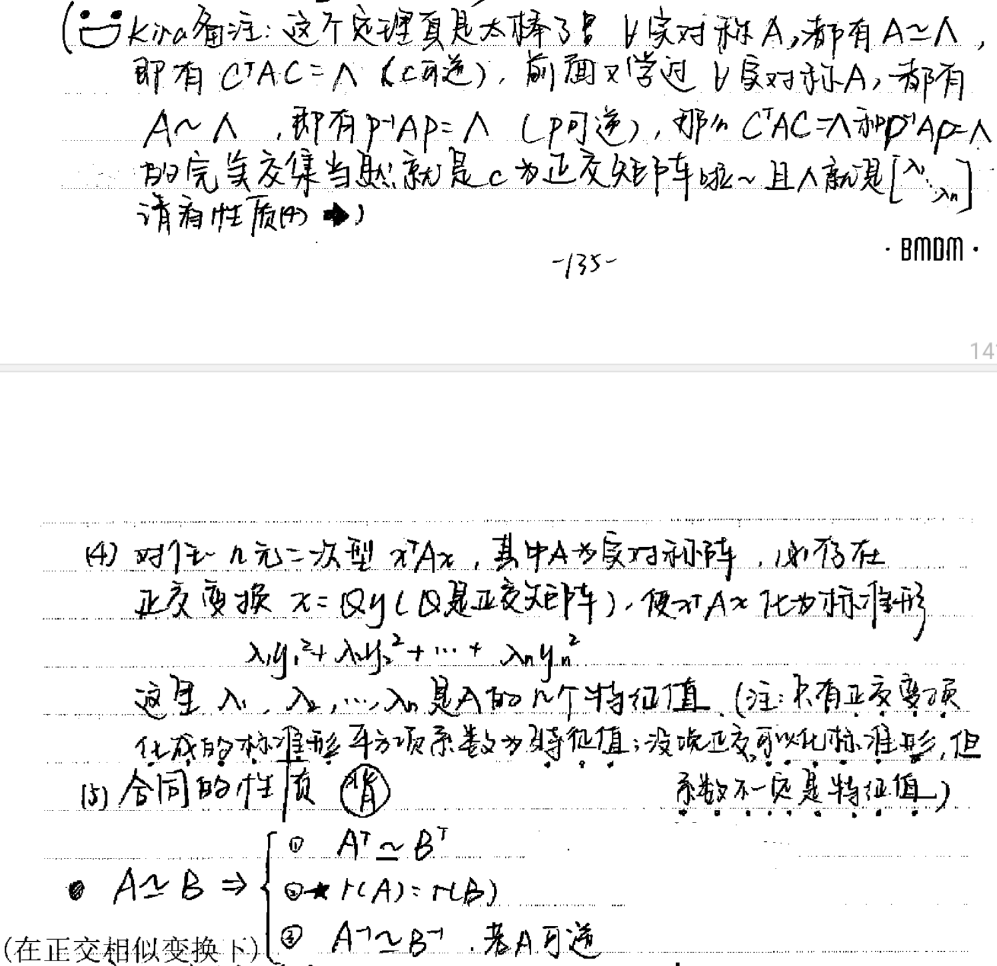 (Kira备注: 这个定理真是太棒了! ∀实对称A, 都有A≃Λ,
即有 CᵀAC=Λ (C可逆), 前面又学过 ∀实对称A, 都有
A∼Λ, 即有P⁻¹AP=Λ (P可逆), 那么 CᵀAC=Λ和P⁻¹AP=Λ
的完美交集当然就是C为正交矩阵啦~ 且Λ就是[λ₁⋱λₙ]
请看性质(4) ➡)
-135-
· BMDM ·
14
(4) 对任一n元二次型 xᵀAx, 其中A为实对称阵, 必存在
正交变换 x=Qy (Q是正交矩阵), 使xᵀAx 化为标准形
λ₁y₁²+λ₂y₂²+⋯+λₙyₙ²
这里 λ₁, λ₂, ⋯, λₙ 是A的n个特征值. (注: 只有正交变换
化成的标准形平方项系数为特征值; 没说正交可以化标准形, 但
系数不一定是特征值)
(5) 合同的性质 背
① Aᵀ≃Bᵀ
A≃B ⇒ { ②★ r(A)=r(B)
(在正交相似变换下) ③ A⁻¹≃B⁻¹, 若A可逆